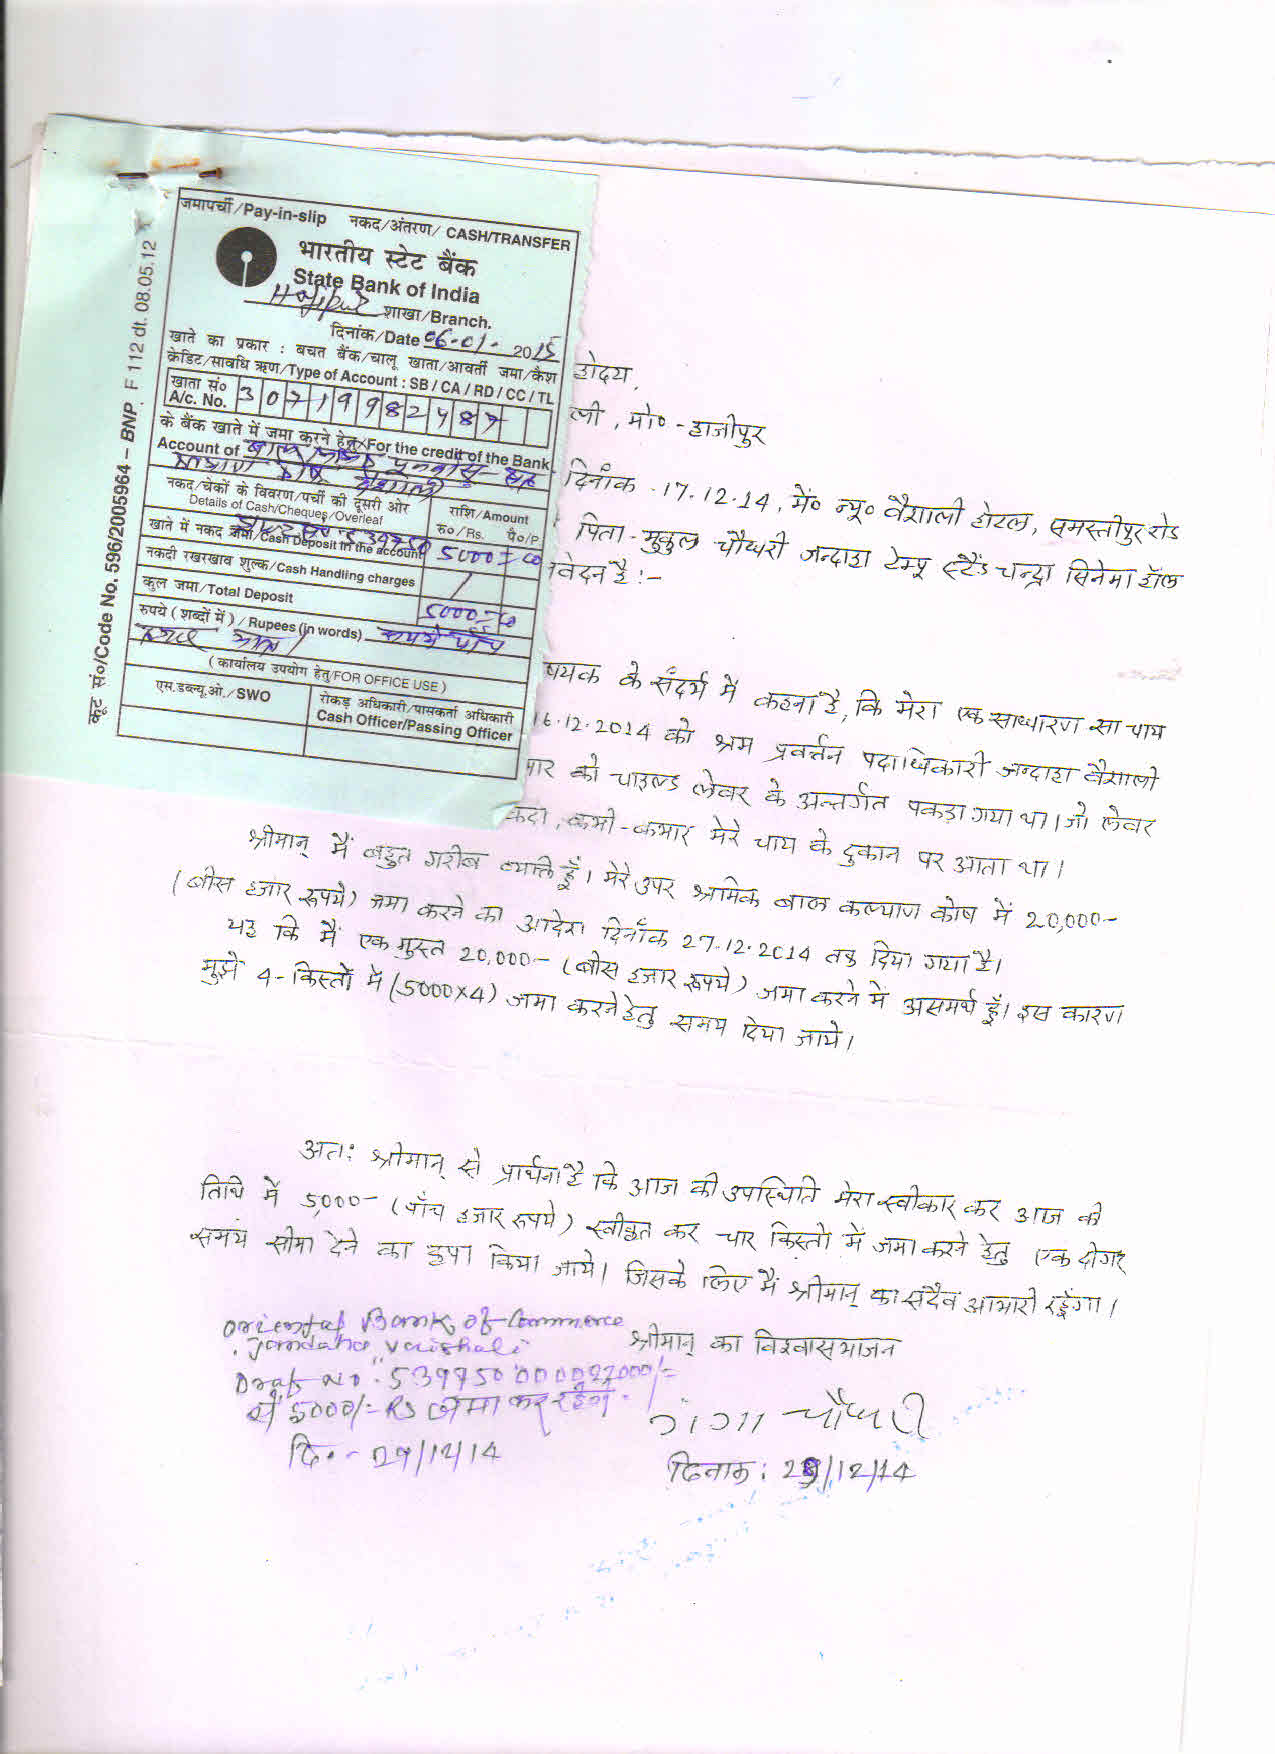 जमापर्ची/Pay-in-slip नकद/अंतरण/ CASH/TRANSFER
भारतीय स्टेट बैंक
State Bank of India
Hajipur शाखा/Branch.
दिनांक/Date 06-01- 2015
खाते का प्रकार : बचत बैंक/चालू खाता/आवर्ती जमा/कैश
क्रेडिट/सावधि ऋण/Type of Account : SB / CA / RD / CC / TL
खाता सं० 30719982487
A/c. No.
के बैंक खाते में जमा करने हेतु/For the credit of the Bank
Account of
नकद/चेकों के विवरण/पर्ची की दूसरी ओर राशि/Amount
Details of Cash/Cheques/Overleaf रु०/Rs. पै०/P.
खाते में नकद जमा/Cash Deposit in the account 5000=00
नकदी रखरखाव शुल्क/Cash Handling charges
कुल जमा/Total Deposit 5000=00
रुपये ( शब्दों में ) / Rupees (in words) रूपये पाँच
हजार मात्र
( कार्यालय उपयोग हेतु/FOR OFFICE USE )
एस.डब्ल्यू.ओ./SWO रोकड़ अधिकारी/पासकर्ता अधिकारी
Cash Officer/Passing Officer
कूट सं०/Code No. 596/2005964 – BNP. F 112 dt. 08.05.12
होदय,
ली, मो० - हाजीपुर
दिनाँक .17.12.14, में० न्यू० वैशाली होटल, समस्तीपुर रोड
पिता - मुकुल चौधरी जन्दाहा टेम्पू स्टैंड चन्द्रा सिनेमा हॉल
वेदन है :-
षयक के संदर्भ में कहना है, कि मेरा एक साधारण सा चाय
16.12.2014 को श्रम प्रवर्त्तन पदाधिकारी जन्दाहा वैशाली
मार को चाइल्ड लेवर के अन्तर्गत पकड़ा गया था। जो लेवर
कदा, कभी-कभार मेरे चाय के दुकान पर आता था।
श्रीमान् मैं बहुत गरीब व्यक्ति हूँ। मेरे उपर श्रमिक बाल कल्याण कोष में 20,000-
(बीस हजार रूपये) जमा करने का आदेश दिनाँक 27.12.2014 तक दिया गया है।
यह कि मैं एक मुस्त 20,000- (बीस हजार रूपये) जमा करने में असमर्थ हूँ। इस कारण
मुझे 4-किस्तों में (5000x4) जमा करने हेतु समय दिया जाये।
अतः श्रीमान् से प्रार्थना है कि आज की उपस्थिति मेरा स्वीकार कर आज की
तिथि में 5,000- (पाँच हजार रूपये) स्वीकृत कर चार किस्तो में जमा करने हेतु एक दोगर
समय सीमा देने का कृपा किया जाये। जिसके लिए मैं श्रीमान् का सदैव आभारी रहूँगा।
Oriental Bank of Commerce
Jandaha Vaishali
श्रीमान् का विश्वासभाजन
Draft No.
से 5000/= Rs जमा कर रहे
दि.- 29/12/14
गंगा चौधरी
दिनाक : 29/12/14